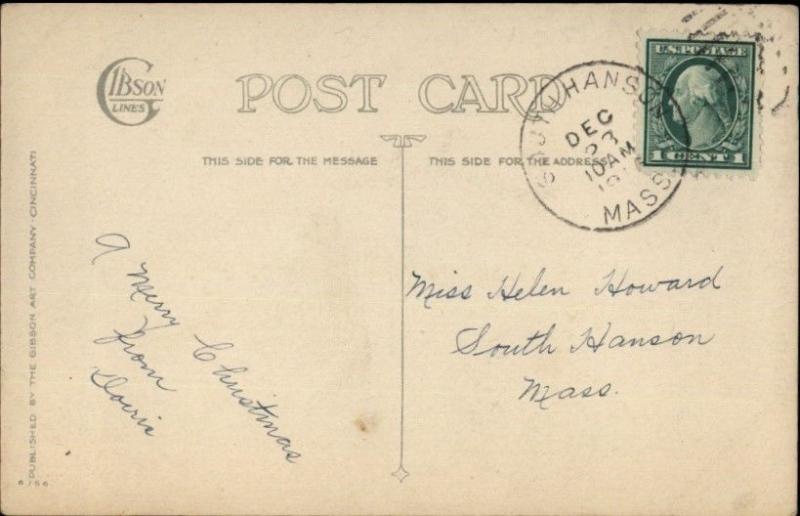 GIBSON
LINES
POST CARD
THIS SIDE FOR THE MESSAGE
THIS SIDE FOR THE ADDRESS
SOUTH HANSON
DEC
23
10AM
MASS.
U.S. POSTAGE
1 CENT 1
A Merry Christmas
from
Doris
Miss Helen Howard
South Hanson
Mass.
PUBLISHED BY THE GIBSON ART COMPANY · CINCINNATI